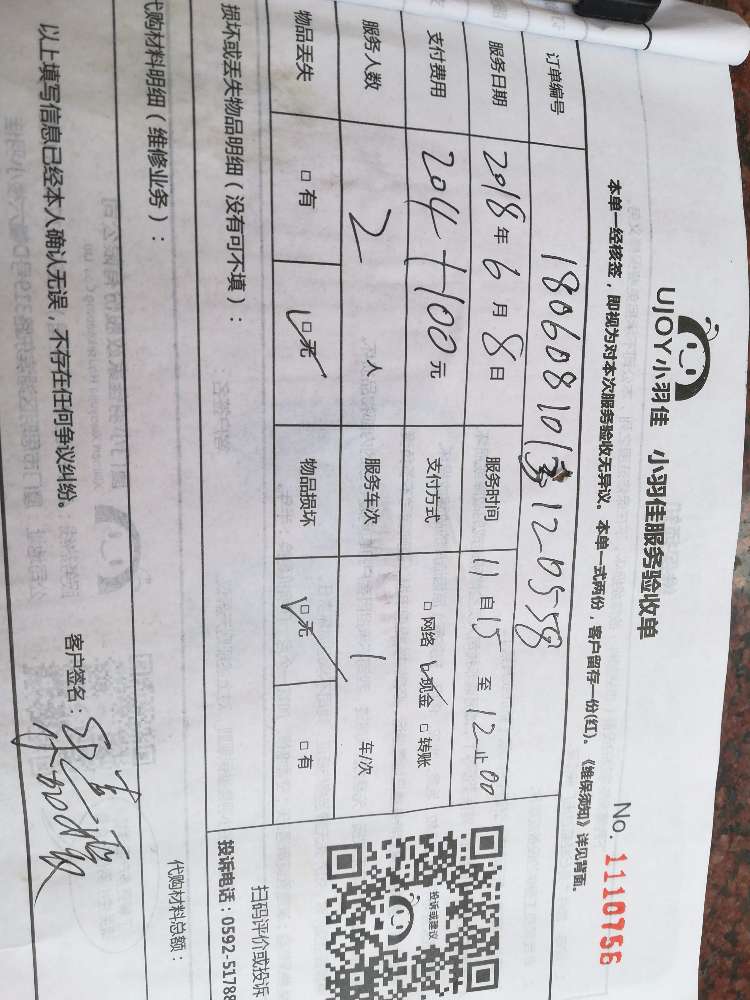 UJOY小羽佳 小羽佳服务验收单
No. 1110756
本单一经核签，即视为对本次服务验收无异议。本单一式两份，客户留存一份(红)。《维保须知》详见背面。
订单编号 180608101 120558
服务日期 2018年6月8日 服务时间 11自15至12止00
支付费用 204+100元 支付方式 □网络 □现金 □转账
服务人数 2人 服务车次 1 车/次
物品丢失 □有 □无 物品损坏 □无 □有
损坏或丢失物品明细（没有可不填）：
投诉或建议
扫码评价或投诉
投诉电话：0592-51788
代购材料明细（维修业务）：
代购材料总额：
以上填写信息已经本人确认无误，不存在任何争议纠纷。
客户签名：